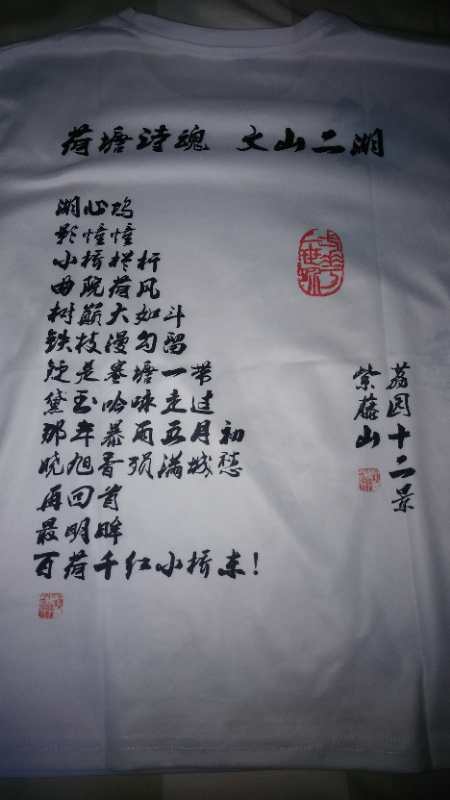 荷塘诗魂 文山二湖
湖心鸣
影憧憧
小桥栏杆
曲院荷风
树巅大如斗
铁枝漫勾留
定是寒塘一带
黛玉吟咏走过
那年暴雨五月初
晓旭香殒满城愁
再回首
最明眸
百荷千红小桥东！
荔园十二景
紫藤山